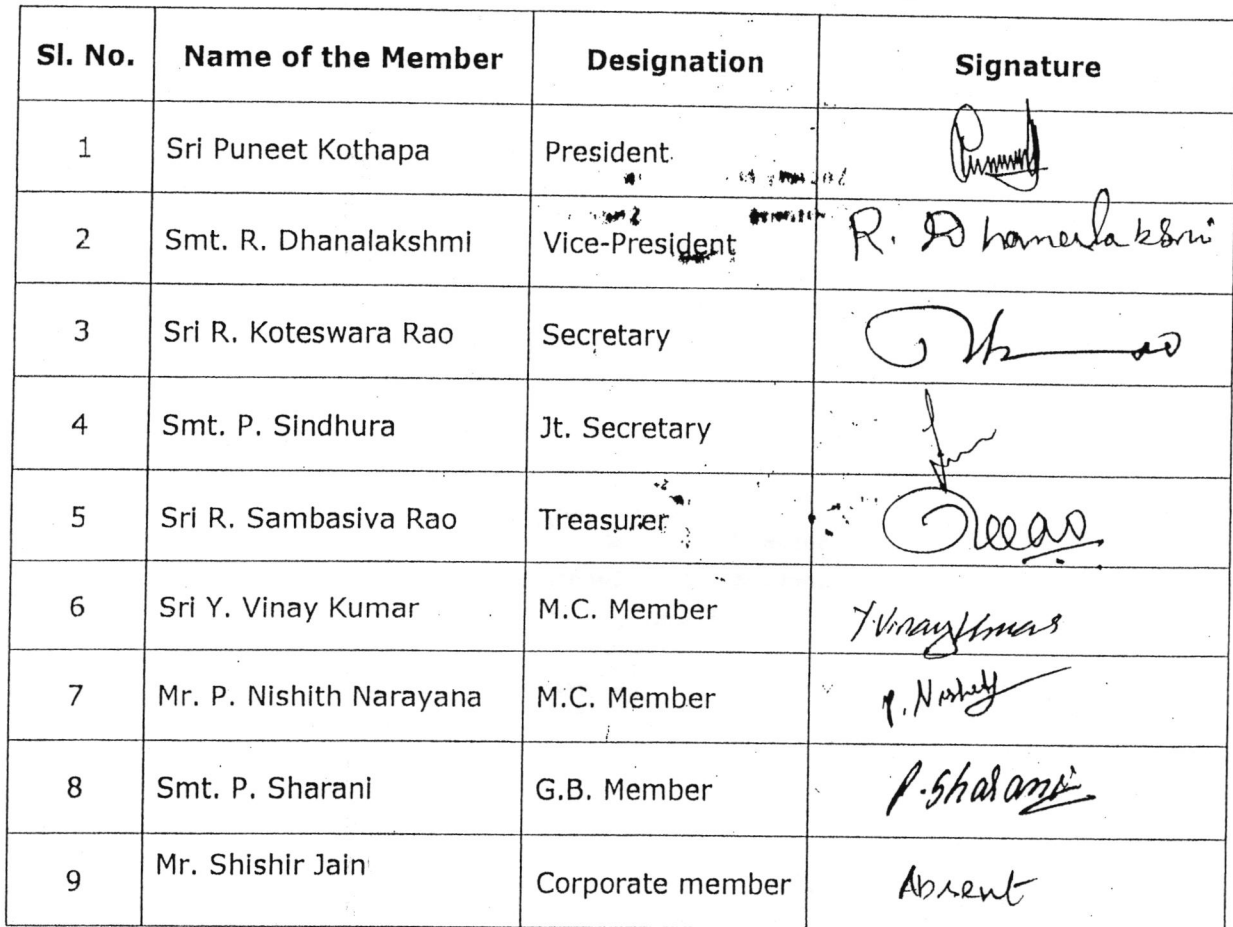 Sl. No. Name of the Member Designation Signature
1 Sri Puneet Kothapa President
2 Smt. R. Dhanalakshmi Vice-President R. Dhanalakshmi
3 Sri R. Koteswara Rao Secretary
4 Smt. P. Sindhura Jt. Secretary
5 Sri R. Sambasiva Rao Treasurer
6 Sri Y. Vinay Kumar M.C. Member Y. Vinay Kumar
7 Mr. P. Nishith Narayana M.C. Member P. Nishith
8 Smt. P. Sharani G.B. Member P. Sharani
9 Mr. Shishir Jain Corporate member Absent